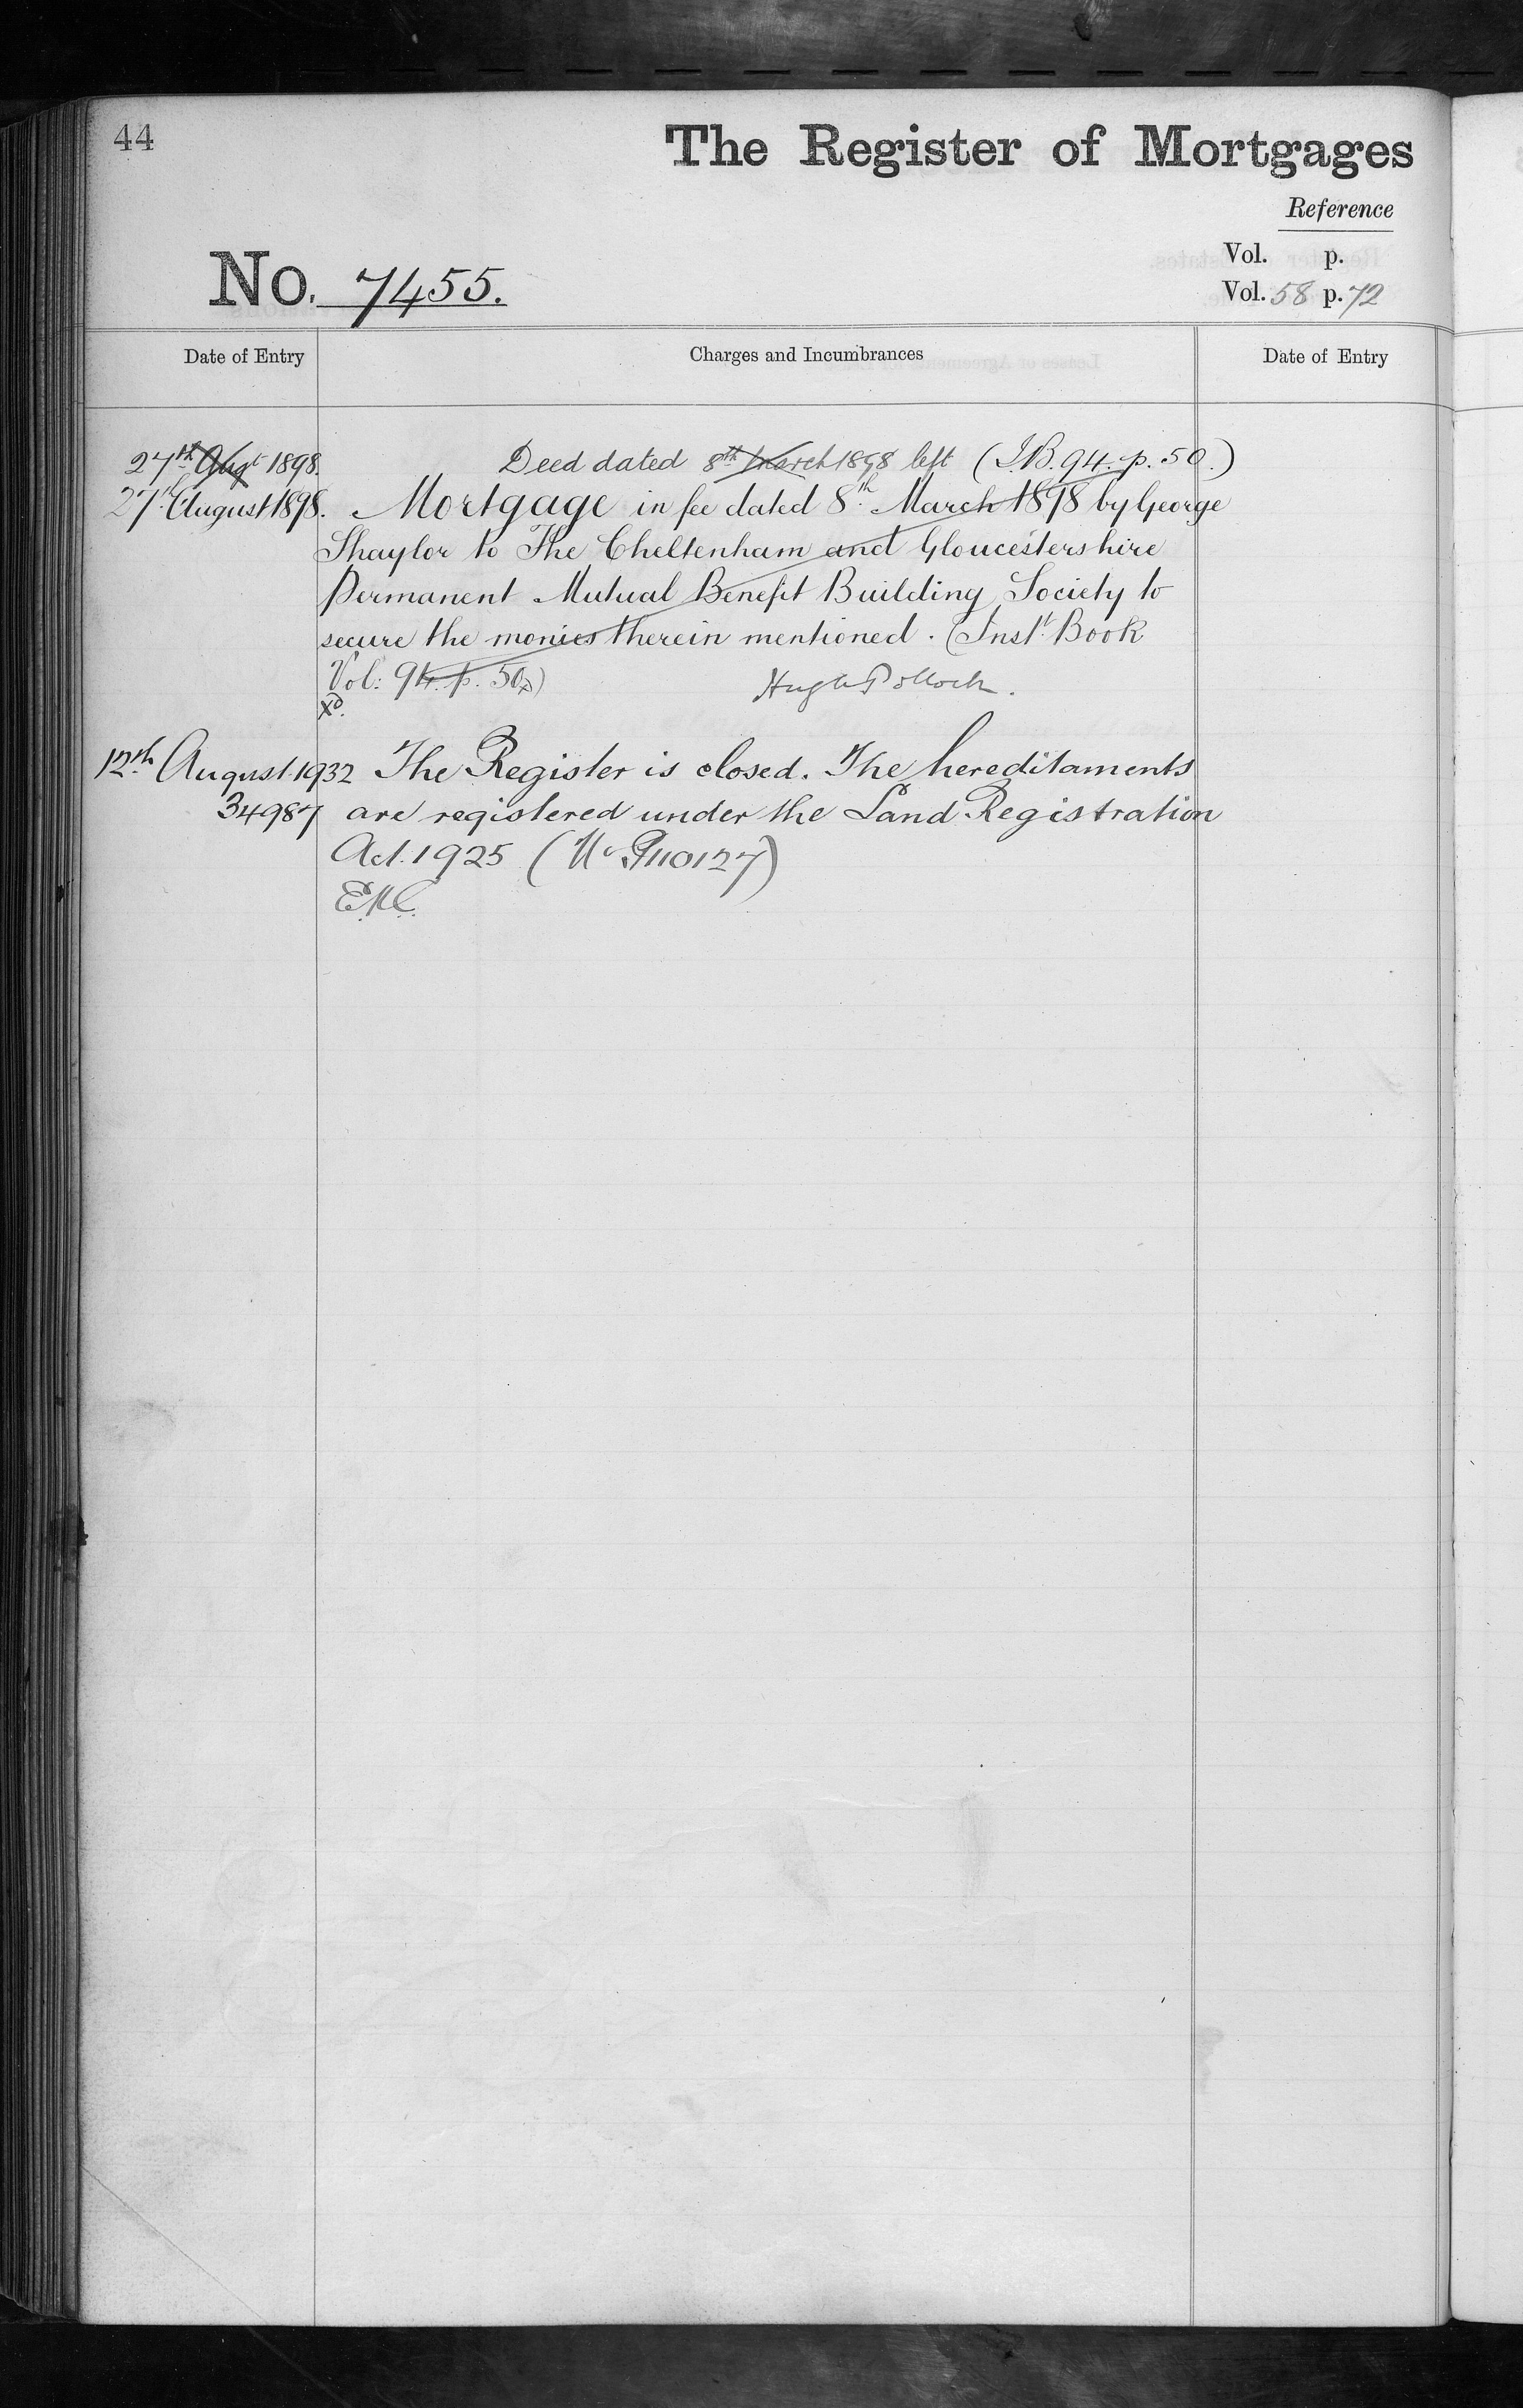 44
The Register of Mortgages
Reference
Vol. p.
No. 7455.
Vol. 58 p. 72
Date of Entry Charges and Incumbrances Date of Entry
27th Augt 1898. Deed dated 8th March 1898 left (I.B. 94. p. 50.)
27th August 1898. Mortgage in fee dated 8th March 1898 by George
Shaylor to The Cheltenham and Gloucestershire
Permanent Mutual Benefit Building Society to
secure the monies therein mentioned. (Inst. Book
Vol: 94. p. 50)
Hugh Pollock.
12th August 1932 The Register is closed. The hereditaments
34987 are registered under the Land Registration
Act. 1925 (No P110127)